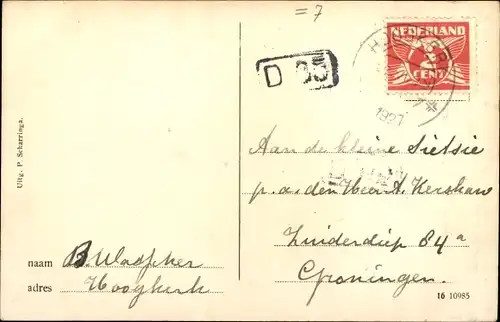 = 7
NEDERLAND
2
CENT
D 35
1927
Aan de kleine Sietsie
p.a. den Heer A. Kershaw
Zuiderdiep 84a
Groningen.
Uitg. P. Scharringa.
naam B. Wadpher
adres Hoogkerk
16 10985